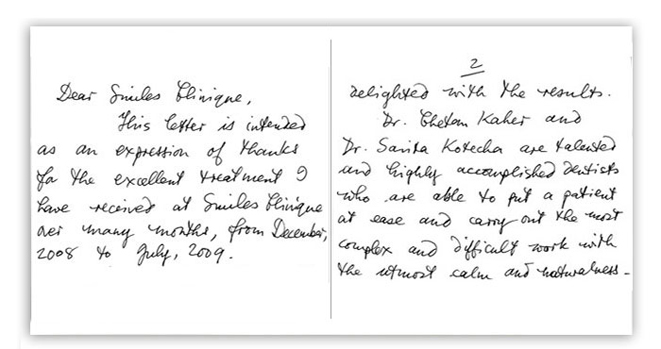 Dear Smiles Clinique,
This letter is intended
as an expression of thanks
for the excellent treatment I
have received at Smiles Clinique
over many months, from December,
2008 to July, 2009.
2
delighted with the results.
Dr. Chetan Kaher and
Dr. Sarita Kotecha are talented
and highly accomplished dentists
who are able to put a patient
at ease and carry out the most
complex and difficult work with
the utmost calm and naturalness.